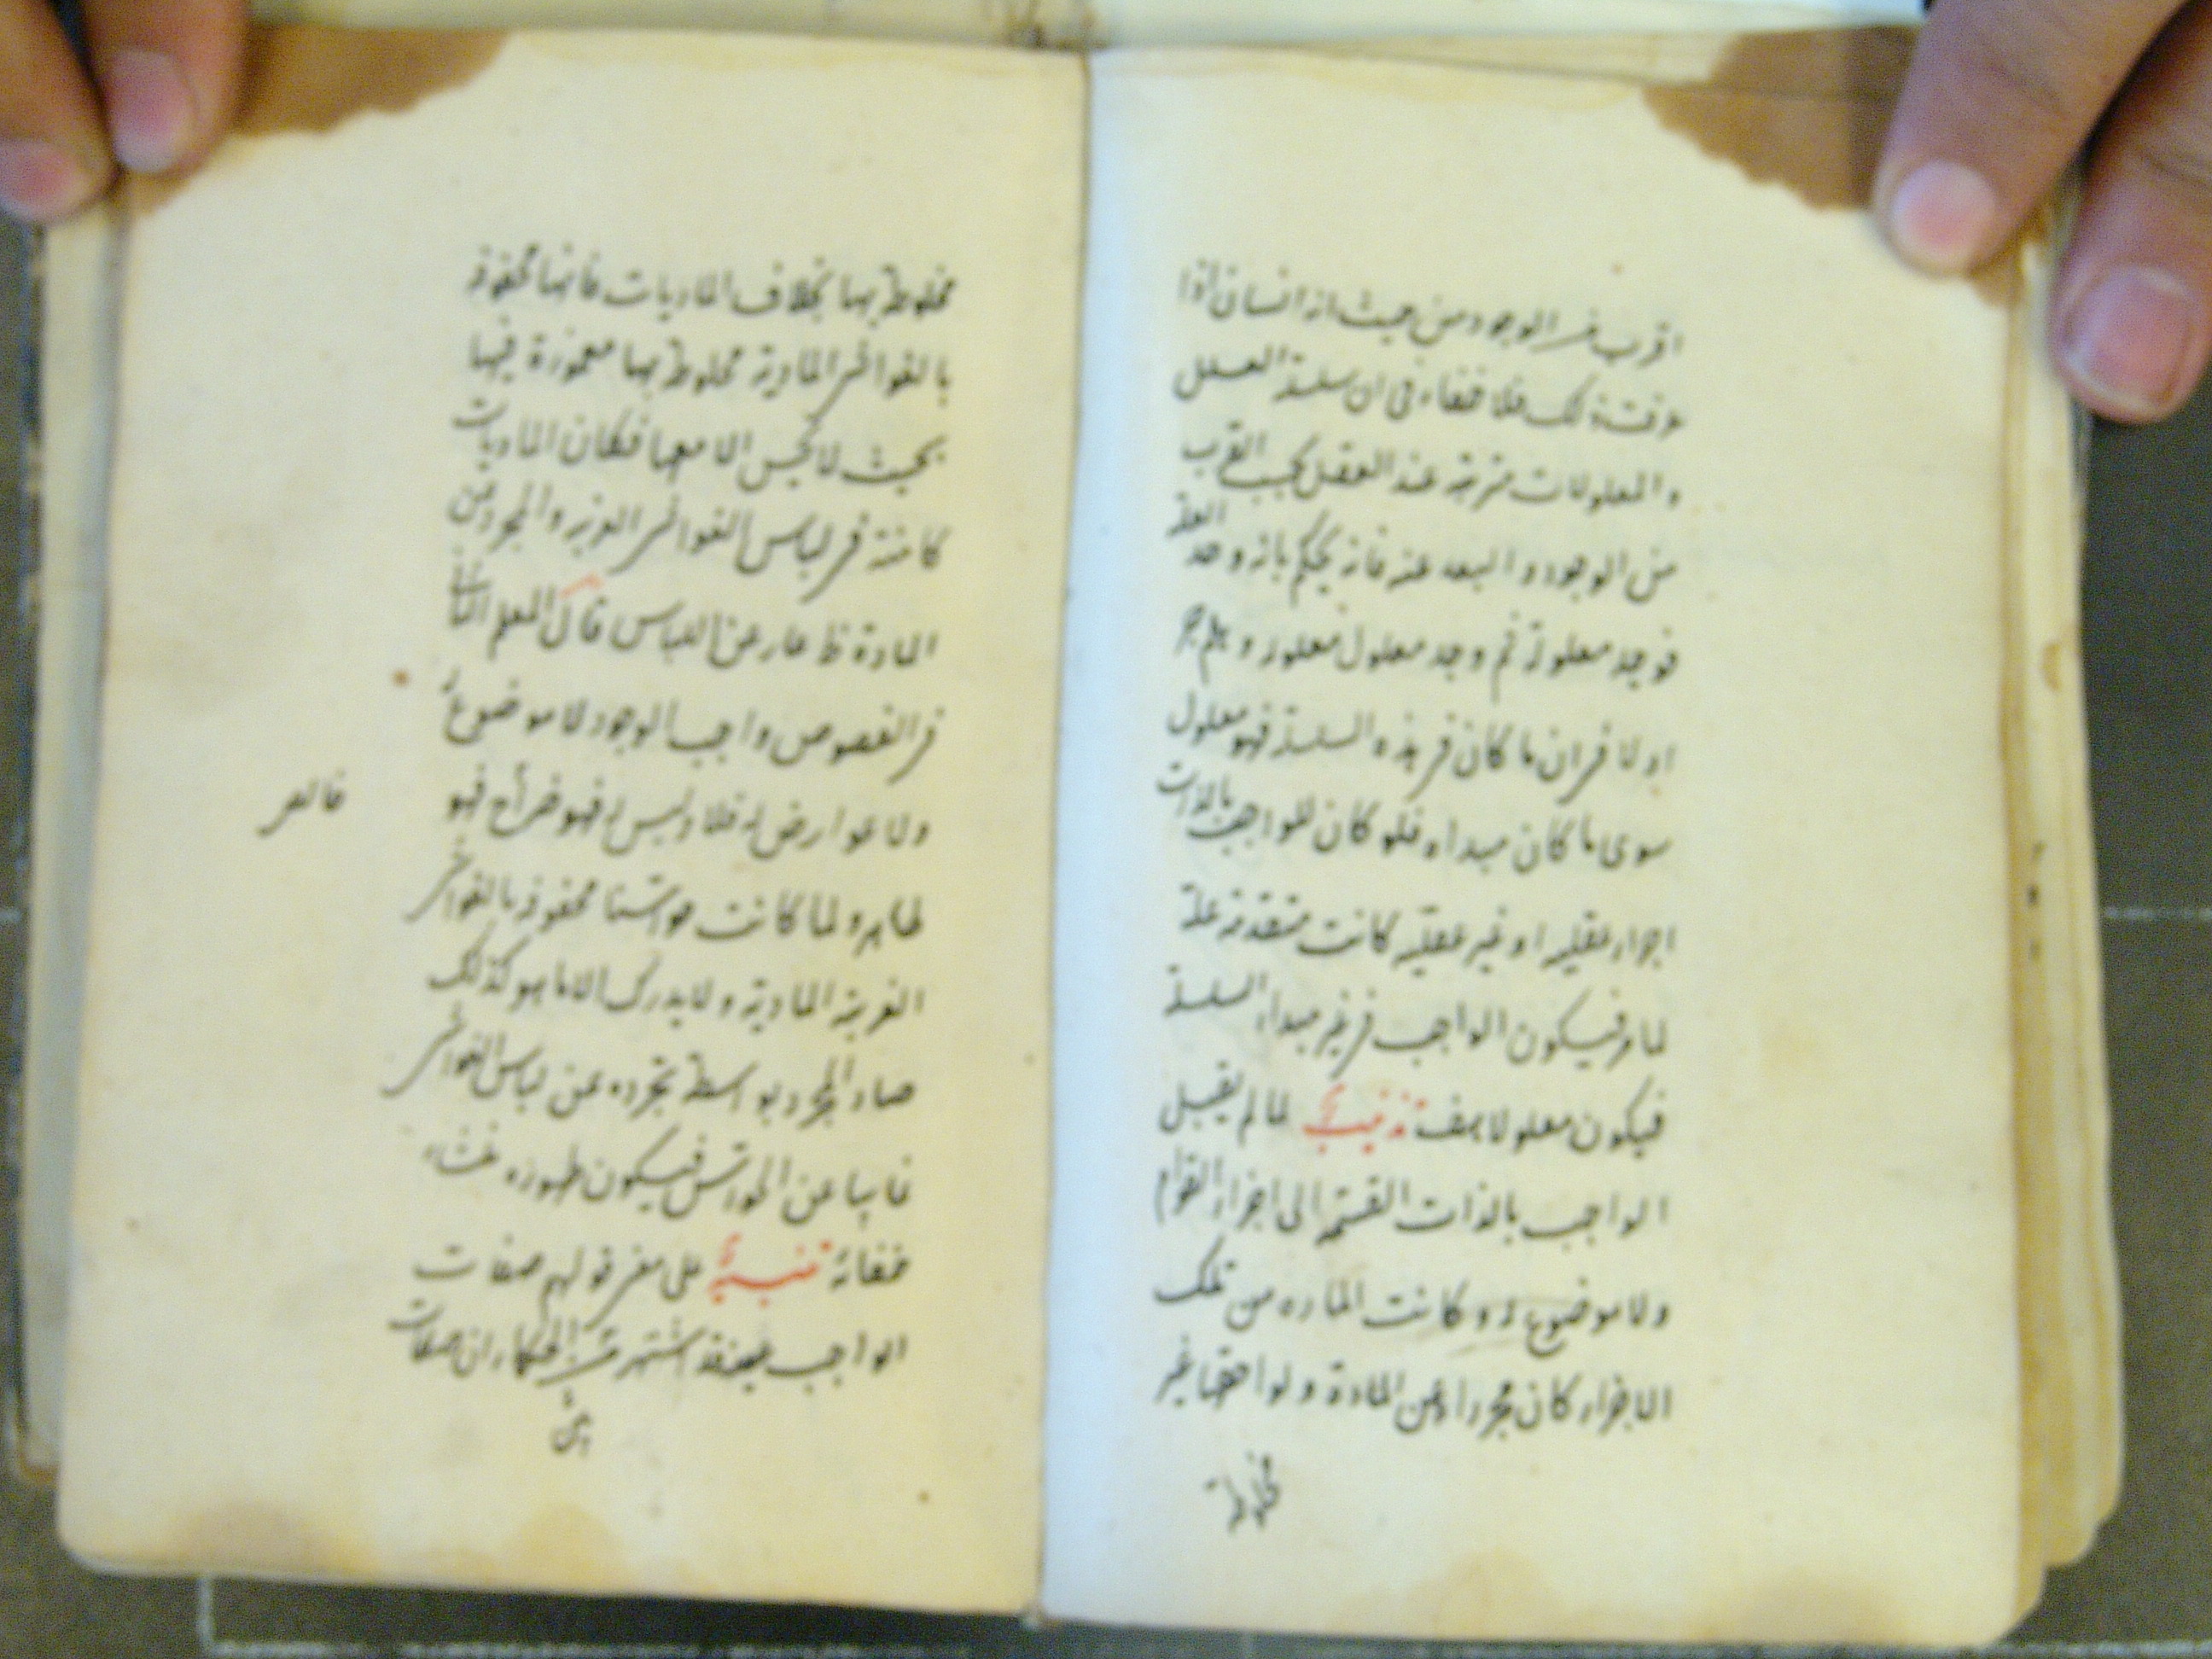 اقرب من الوجود من حيث انه انسان اذا
عرفت ذلك فلا خفاء فى ان سلسلة العلل
و المعلولات مترتبة عند العقل بحسب القرب
من الوجود و البعد عنه فانه يحكم بانه وجد العلة
فوجد معلوله ثم وجد معلول معلوله و هلم جر
اولا فى ان ما كان فى هذه السلسلة فهو معلول
سوى ما كان مبداه فلو كان للواجب بالذات
اجزاء عقلية او غير عقلية كانت متقدمة علة
لما مر فيكون الواجب فى غير مبداء السلسلة
فيكون معلولا هف تذنيب لما لم يقبل
الواجب بالذات القسمة الى اجزاء القوام
ولا موضوع له و كانت المادة من تلك
الاجزاء كان مجردا عن المادة و لواحقها غير
مخلوطة
مخلوط بها بخلاف الماديات فانها محفوفة
بالغواشى المادية مخلوطة بها مغمورة فيها
بحيث لا تحس الا معها فكان الماديات
كامنة فى لباس الغواشى الغريبة والمجرد من
المادة عار عن اللباس قال المعلم الثانى
فى الفصوص واجب الوجود لا موضوع له
ولا عوارض له فلا لبس له فهو صراح فهو
ظاهر و لما كانت حواسنا محفوفة بالغواشى
الغريبة المادية ولا يدرك الا ما هو كذلك
صار المجرد بواسطة تجرده عن لباس الغواشى
غايبا عن الحواس فيكون ظهوره منشاء
خفائه تنبيه على معنى قولهم صفات
الواجب عينه قد اشتهر من الحكماء ان صفات